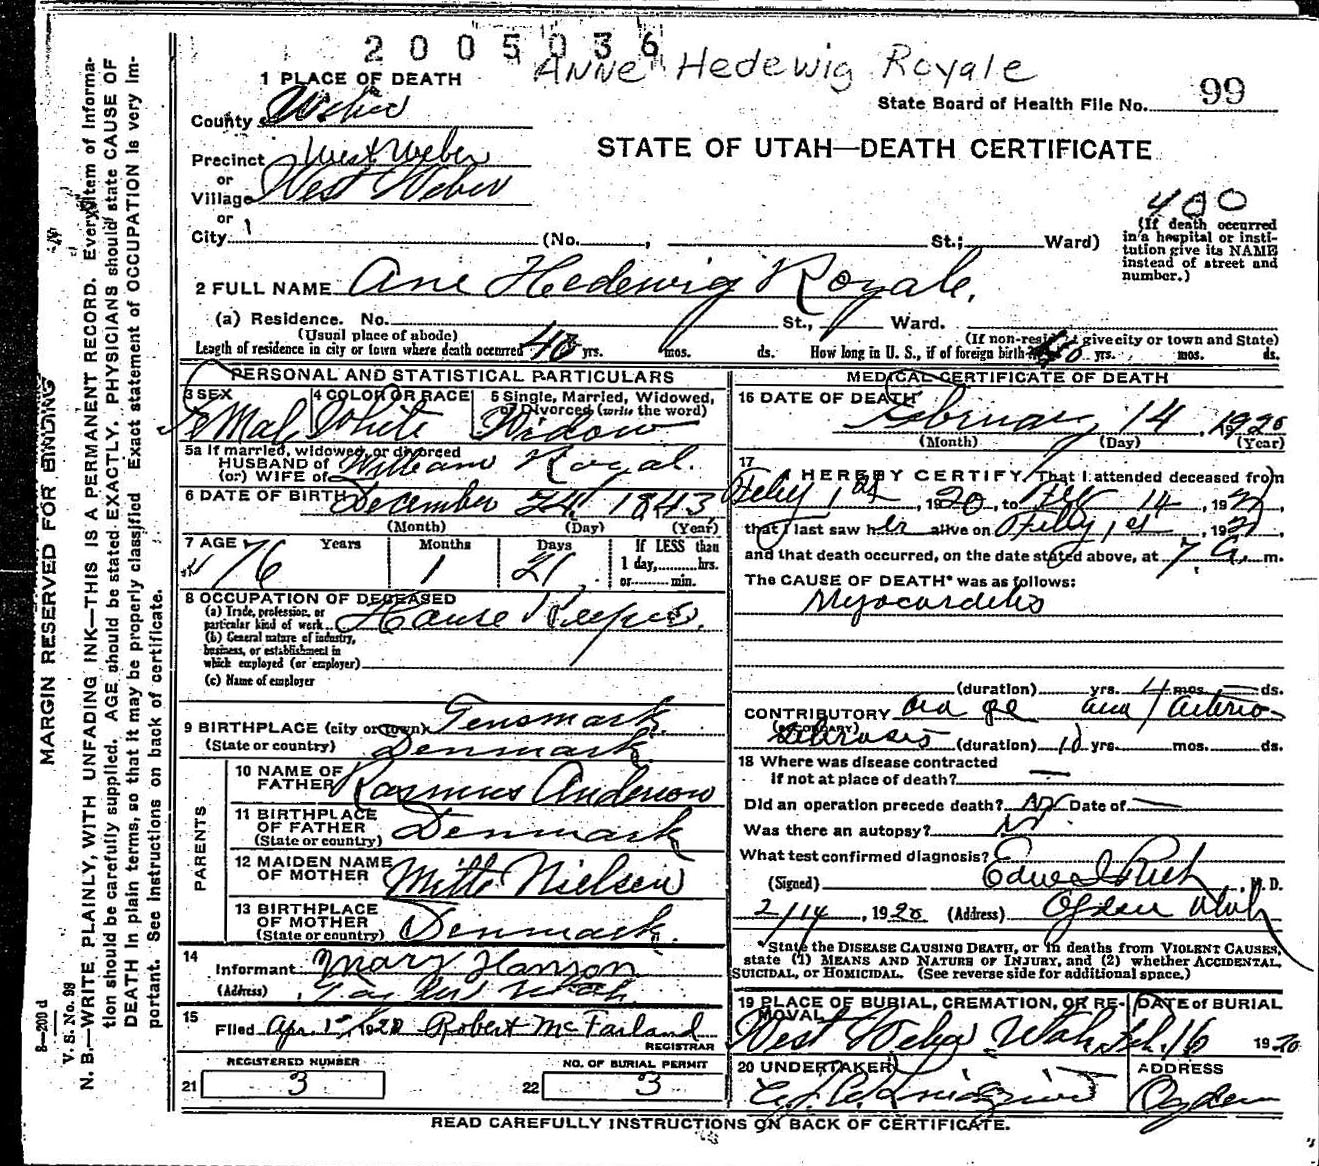 2005036
ANNE Hedewig Royale
1 PLACE OF DEATH
State Board of Health File No. 99
County Weber
STATE OF UTAH—DEATH CERTIFICATE
Precinct West Weber
or
Village West Weber
or
City (No. , St.; Ward)
400
(If death occurred in a hospital or institution give its NAME instead of street and number.)
2 FULL NAME Ane Hedewig Royale.
(a) Residence. No. St., Ward.
(Usual place of abode) (If non-resident give city or town and State)
Length of residence in city or town where death occurred 40 yrs. mos. ds. How long in U. S., if of foreign birth yrs. mos. ds.
PERSONAL AND STATISTICAL PARTICULARS
3 SEX 4 COLOR OR RACE 5 Single, Married, Widowed, or Divorced (write the word)
White Widow
5a If married, widowed, or divorced
HUSBAND of
(or) WIFE of William Royal.
6 DATE OF BIRTH December 24 1843
(Month) (Day) (Year)
7 AGE Years Months Days If LESS than
1 day, hrs.
or min.
76 1 21
8 OCCUPATION OF DECEASED
(a) Trade, profession, or particular kind of work House Keeper.
(b) General nature of industry, business, or establishment in which employed (or employer)
(c) Name of employer
9 BIRTHPLACE (city or town)
(State or country) Denmark
PARENTS
10 NAME OF FATHER Rasmus Anderson
11 BIRTHPLACE OF FATHER (State or country) Denmark
12 MAIDEN NAME OF MOTHER Mitte Nielsen
13 BIRTHPLACE OF MOTHER (State or country) Denmark.
14 Informant Mary Hanson
(Address) Utah
15 Filed Apr. 1st, 1920 Robert McFarland
REGISTRAR
REGISTERED NUMBER
21 3
NO. OF BURIAL PERMIT
22 3
MEDICAL CERTIFICATE OF DEATH
16 DATE OF DEATH February 14, 1920
(Month) (Day) (Year)
17 I HEREBY CERTIFY, That I attended deceased from
Feby 1st, 1920, to Feb 14, 19
that I last saw her alive on Feby 1st, 19
and that death occurred, on the date stated above, at 7 a. m.
The CAUSE OF DEATH* was as follows:
Myocarditis
(duration) yrs. 4 mos. — ds.
CONTRIBUTORY Old age and Arterio-
(SECONDARY)
Sclerosis (duration) 10 yrs. mos. ds.
18 Where was disease contracted
if not at place of death? —
Did an operation precede death? No Date of —
Was there an autopsy? No
What test confirmed diagnosis?
(Signed) Edw I Rich, M. D.
2/14, 1920 (Address) Ogden Utah
*State the DISEASE CAUSING DEATH, or in deaths from VIOLENT CAUSES, state (1) MEANS AND NATURE OF INJURY, and (2) whether ACCIDENTAL, SUICIDAL, or HOMICIDAL. (See reverse side for additional space.)
19 PLACE OF BURIAL, CREMATION, OR REMOVAL DATE of BURIAL
West Weber Utah Feb. 16 1920
20 UNDERTAKER ADDRESS
Ogden
READ CAREFULLY INSTRUCTIONS ON BACK OF CERTIFICATE.
MARGIN RESERVED FOR BINDING
N. B.—WRITE PLAINLY, WITH UNFADING INK—THIS IS A PERMANENT RECORD. Every item of information should be carefully supplied. AGE should be stated EXACTLY. PHYSICIANS should state CAUSE OF DEATH in plain terms, so that it may be properly classified. Exact statement of OCCUPATION is very important. See instructions on back of certificate.
V. S. No. 98
8—200 d